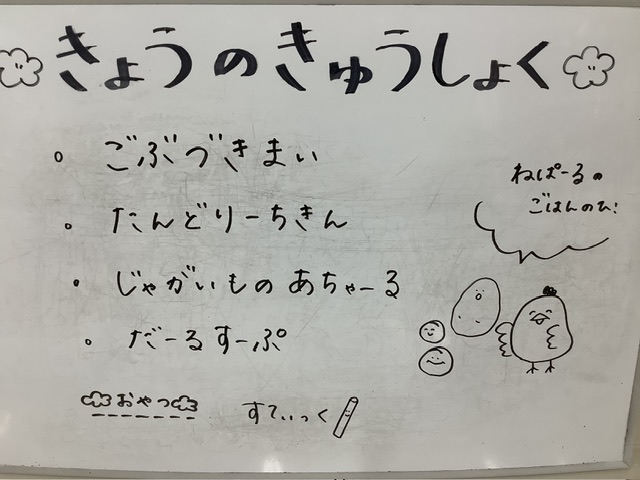 きょうのきゅうしょく
ごぶづきまい
たんどりーちきん
じゃがいものあちゃーる
だーるすーぷ
ねぱーるの
ごはんのひ!
おやつ
すてぃっく